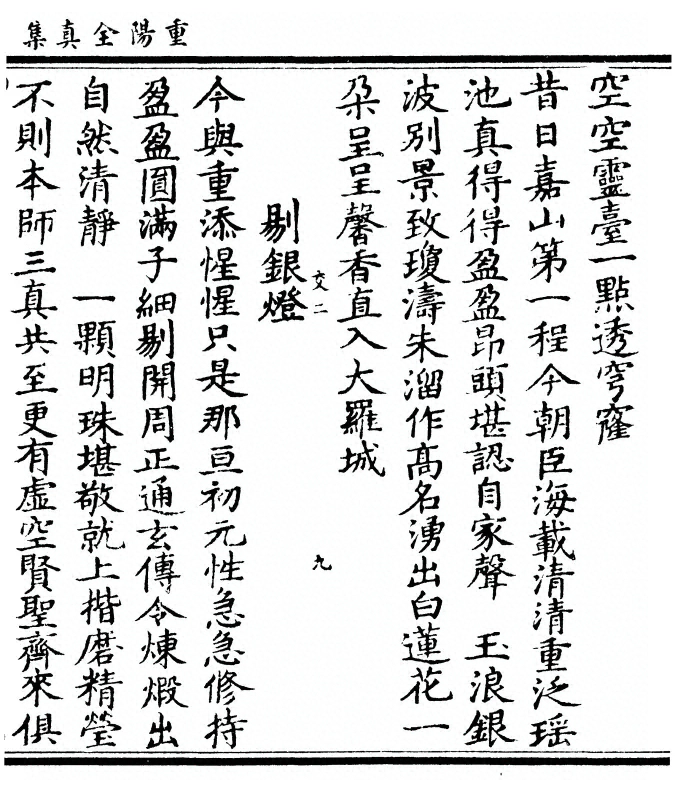 重陽全真集
空空靈臺一點透穹窿
昔日嘉山第一程今朝臣海載清清重泛瑶
池真得得盈盈昂頭堪認自家聲　玉浪銀
波別景致瓊濤朱溜作高名湧出白蓮花一
朶呈呈馨香直入大羅城
交二
九
剔銀燈
今與重添惺惺只是那亘初元性急急修持
盈盈圓滿子細剔開周正通玄傳令煉煅出
自然清靜　一顆明珠堪敬就上揩磨精瑩
不則本師三真共至更有虛空賢聖齊來俱